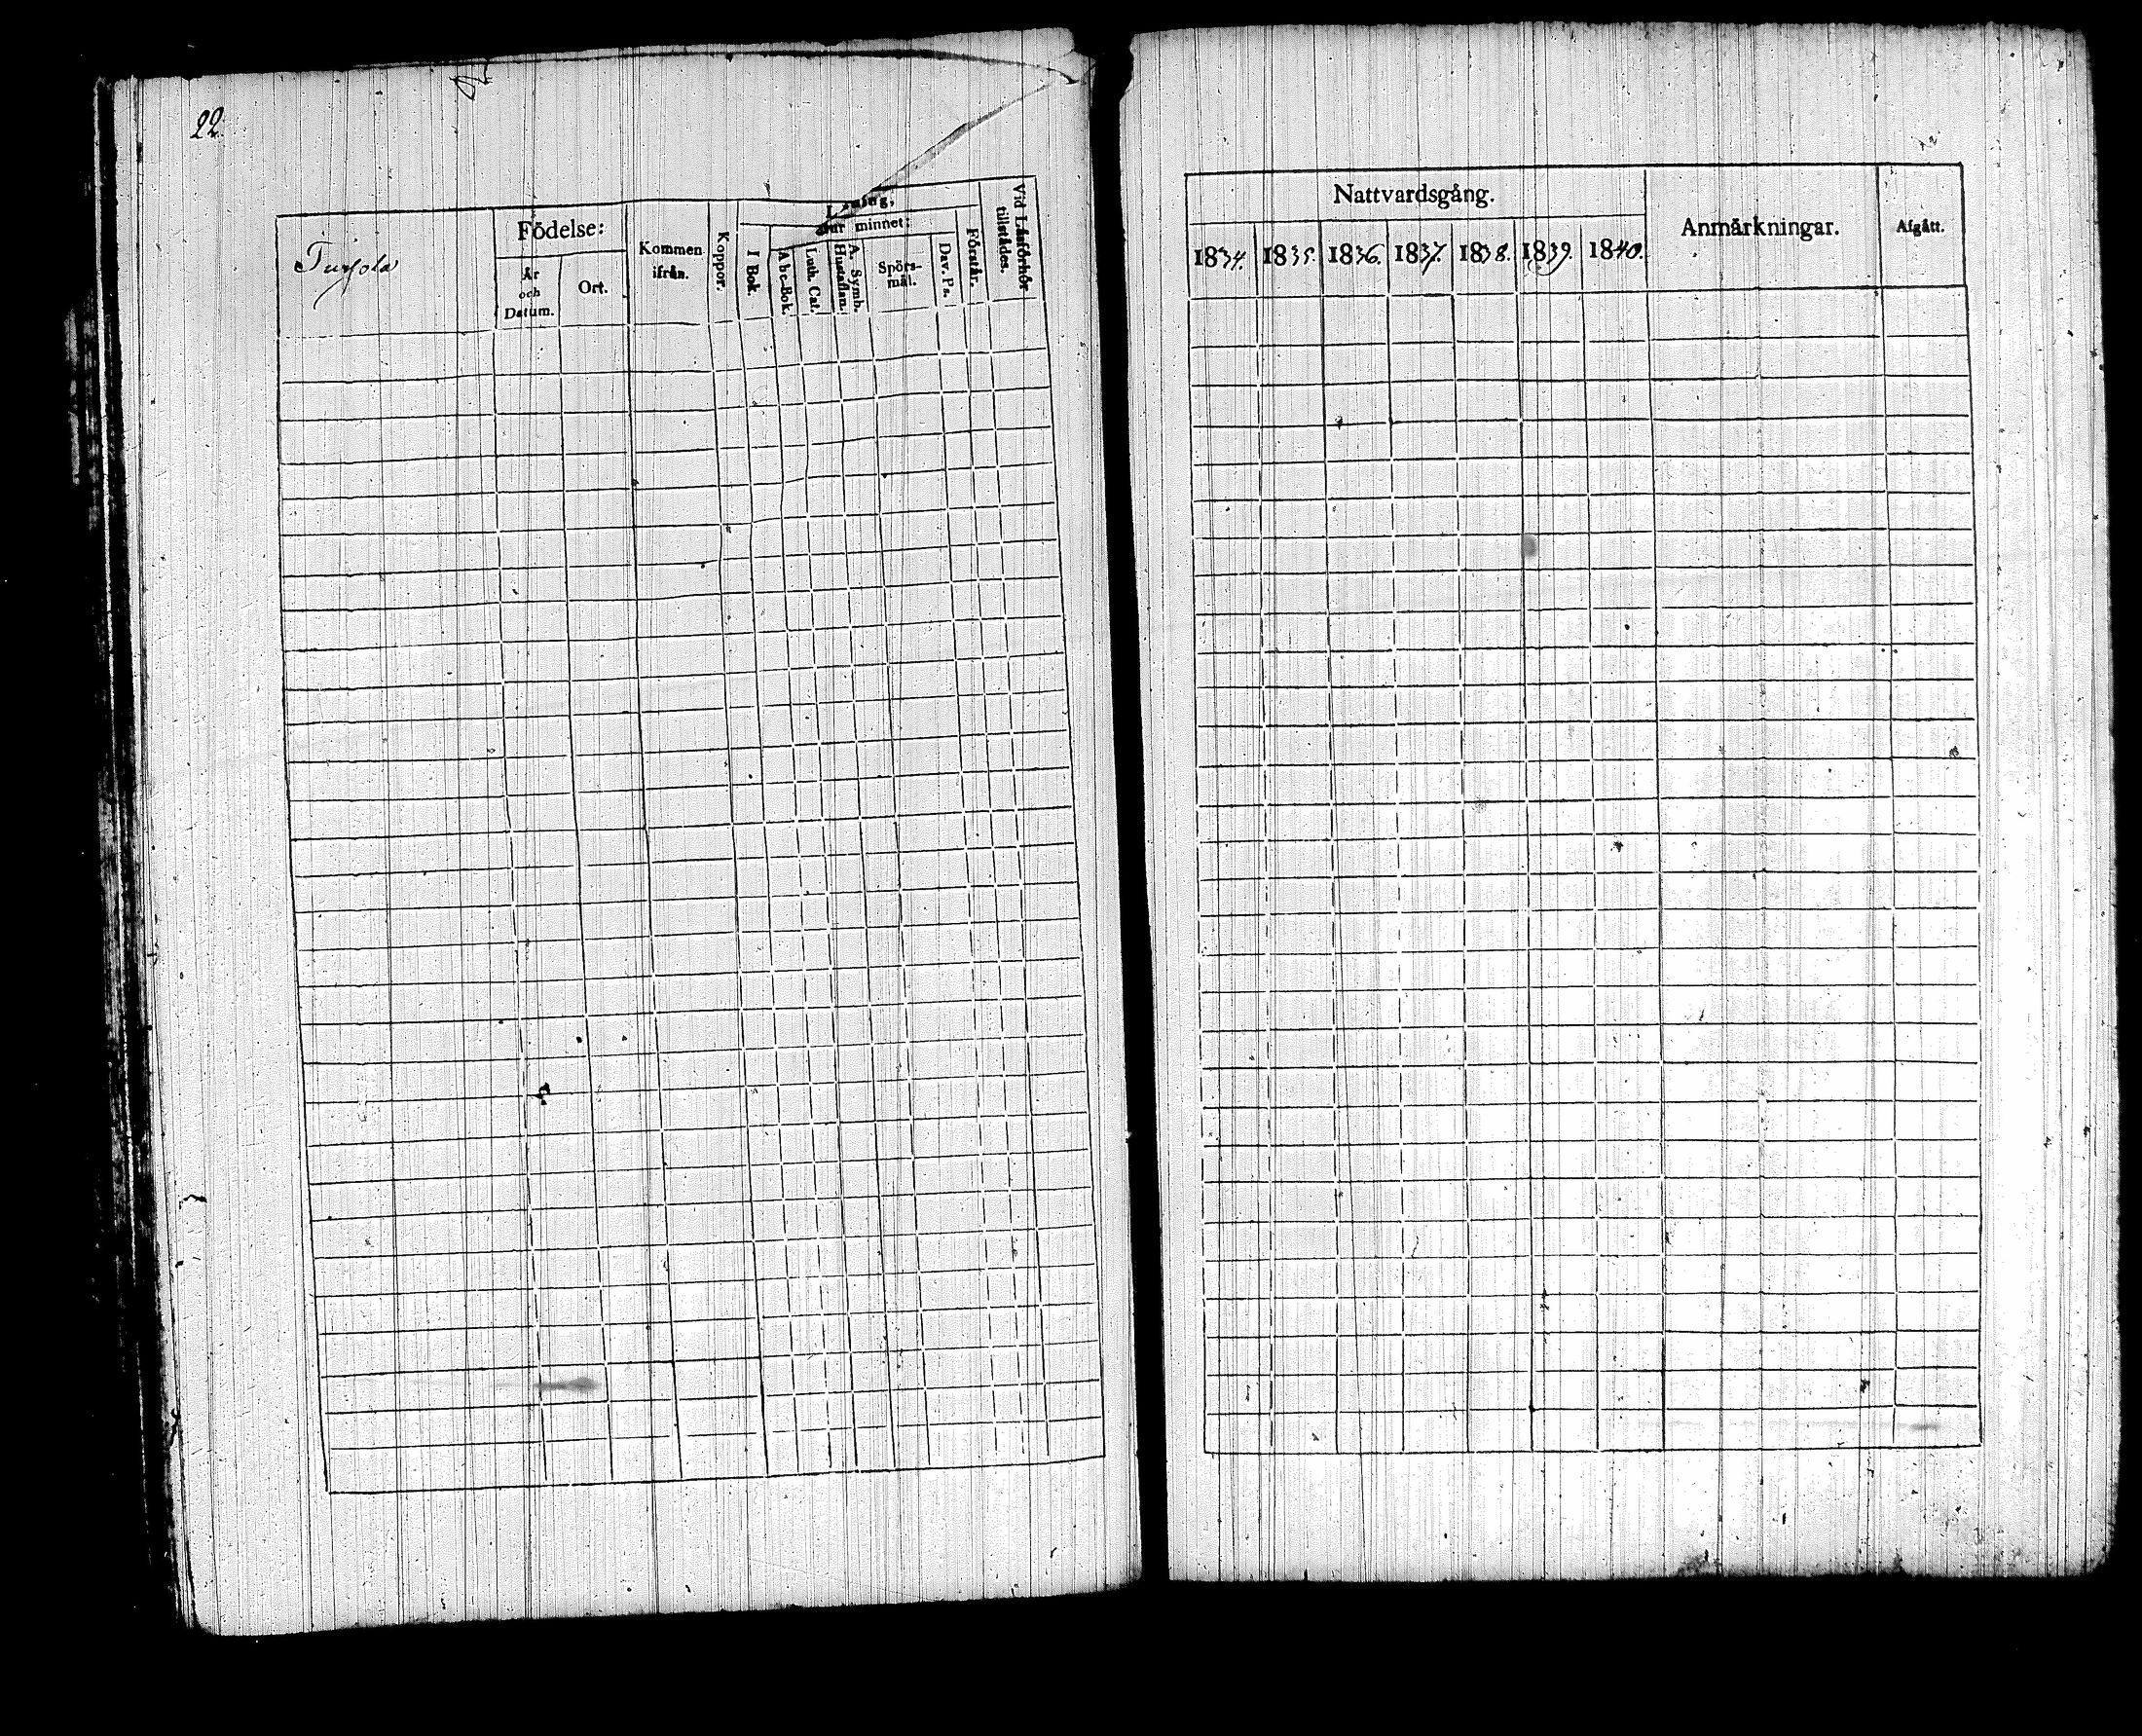 22.
Turjola
Födelse:
År
och
Datum.
Ort.
Kommen
ifrån.
Koppor.
Läsning,
utur minnet:
I Bok.
Abc-Bok.
Luth. Cat.
A. Symb.
Hustaflan.
Spörs-
mål.
Dav. Ps.
Förstår.
Vid Läsförhör
tillstädes.
Nattvardsgång.
1834. 1835. 1836. 1837. 1838. 1839. 1840.
Anmärkningar.
Afgått.